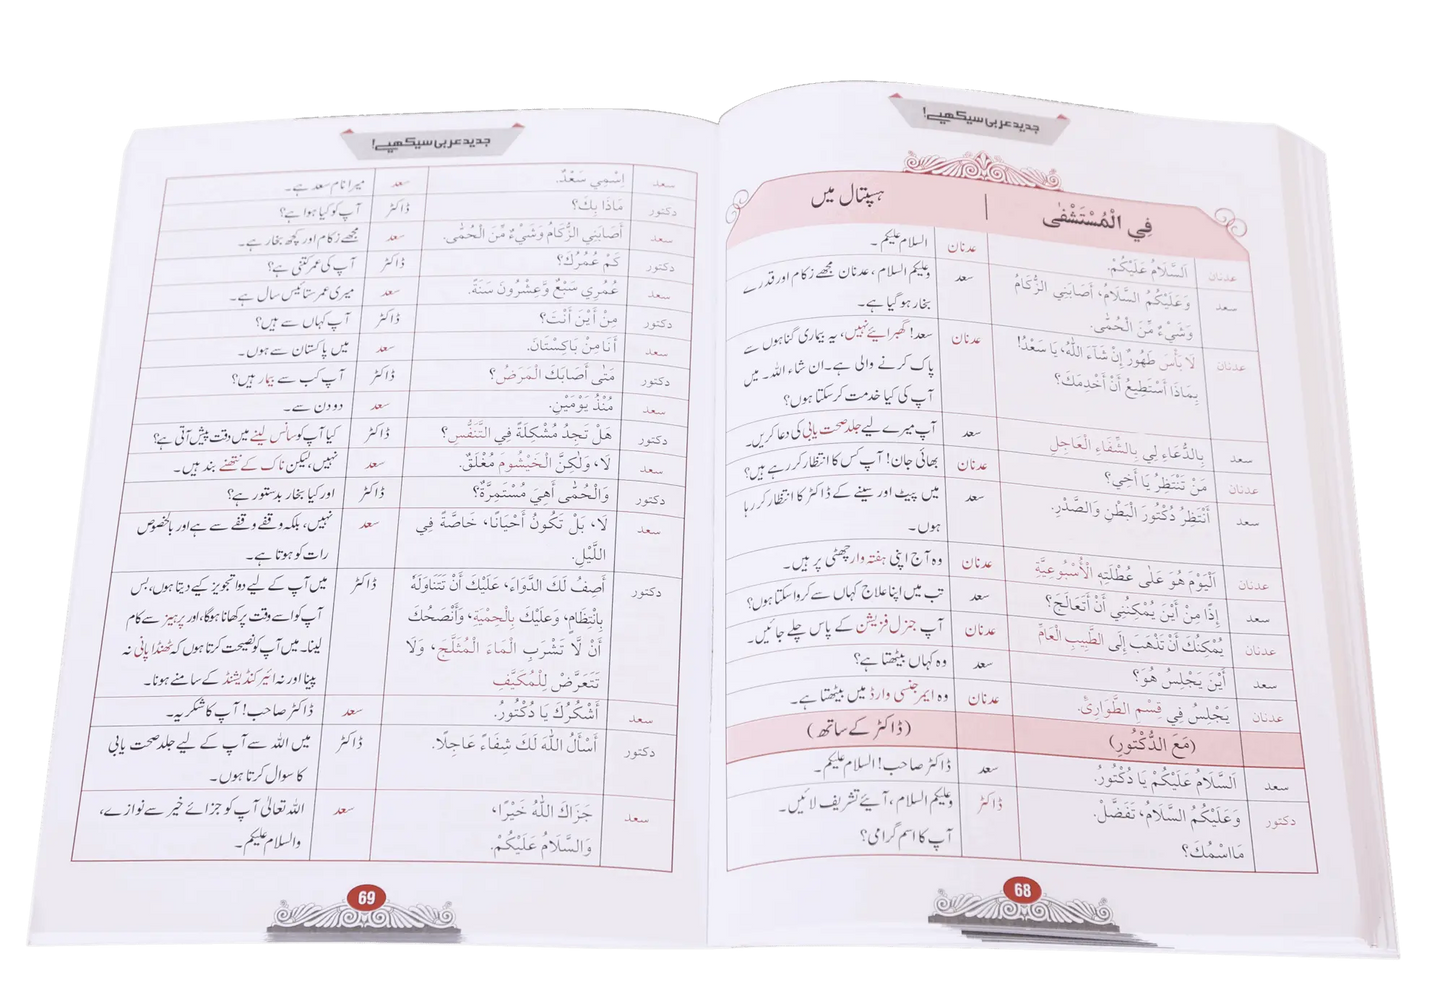 جدید عربی سیکھیے!
فِي الْمُسْتَشْفٰى | ہسپتال میں
عدنان اَلسَّلَامُ عَلَيْكُمْ. عدنان السلام علیکم۔
سعد وَعَلَيْكُمُ السَّلَامُ، أَصَابَنِي الزُّكَامُ سعد وعلیکم السلام، عدنان مجھے زکام اور قدرے
وَشَيْءٌ مِّنَ الْحُمّٰى. بخار ہو گیا ہے۔
عدنان لَا بَأْسَ طَهُورٌ إِنْ شَآءَ اللّٰهُ، يَا سَعْدُ! عدنان سعد! گھبرائیے نہیں، یہ بیماری گناہوں سے
بِمَاذَا أَسْتَطِيعُ أَنْ أَخْدِمَكَ؟ پاک کرنے والی ہے۔ ان شاء اللہ۔ میں
آپ کی کیا خدمت کر سکتا ہوں؟
سعد بِالدُّعَاءِ لِي بِالشِّفَاءِ الْعَاجِلِ سعد آپ میرے لیے جلد صحت یابی کی دعا کریں۔
عدنان مَنْ تَنْتَظِرُ يَا أَخِي؟ عدنان بھائی جان! آپ کس کا انتظار کر رہے ہیں؟
سعد أَنْتَظِرُ دُكْتُورَ الْبَطْنِ وَالصَّدْرِ. سعد میں پیٹ اور سینے کے ڈاکٹر کا انتظار کر رہا
ہوں۔
عدنان اَلْيَوْمَ هُوَ عَلٰى عُطْلَتِهِ الْأُسْبُوعِيَّةِ عدنان وہ آج اپنی ہفتہ وار چھٹی پر ہیں۔
سعد إِذًا مِنْ أَيْنَ يُمْكِنُنِي أَنْ أَتَعَالَجَ؟ سعد تب میں اپنا علاج کہاں سے کروا سکتا ہوں؟
عدنان يُمْكِنُكَ أَنْ تَذْهَبَ إِلَى الطَّبِيبِ الْعَامِّ عدنان آپ جنرل فزیشن کے پاس چلے جائیں۔
سعد أَيْنَ يَجْلِسُ هُوَ؟ سعد وہ کہاں بیٹھتا ہے؟
عدنان يَجْلِسُ فِي قِسْمِ الطَّوَارِئِ. عدنان وہ ایمرجنسی وارڈ میں بیٹھتا ہے۔
(مَعَ الدُّكْتُورِ) (ڈاکٹر کے ساتھ)
سعد اَلسَّلَامُ عَلَيْكُمْ يَا دُكْتُورُ. سعد ڈاکٹر صاحب! السلام علیکم۔
دکتور وَعَلَيْكُمُ السَّلَامُ، تَفَضَّلْ. ڈاکٹر وعلیکم السلام، آیئے تشریف لائیں۔
مَااسْمُكَ؟ آپ کا اسم گرامی؟
68
جدید عربی سیکھیے!
سعد اِسْمِي سَعْدٌ. سعد میرا نام سعد ہے۔
دکتور مَاذَا بِكَ؟ ڈاکٹر آپ کو کیا ہوا ہے؟
سعد أَصَابَنِي الزُّكَامُ وَشَيْءٌ مِّنَ الْحُمّٰى. سعد مجھے زکام اور کچھ بخار ہے۔
دکتور كَمْ عُمُرُكَ؟ ڈاکٹر آپ کی عمر کتنی ہے؟
سعد عُمُرِي سَبْعٌ وَّعِشْرُونَ سَنَةً. سعد میری عمر ستائیس سال ہے۔
دکتور مِنْ أَيْنَ أَنْتَ؟ ڈاکٹر آپ کہاں سے ہیں؟
سعد أَنَا مِنْ بَاكِسْتَانَ. سعد میں پاکستان سے ہوں۔
دکتور مَتٰى أَصَابَكَ الْمَرَضُ؟ ڈاکٹر آپ کب سے بیمار ہیں؟
سعد مُنْذُ يَوْمَيْنِ. سعد دو دن سے۔
دکتور هَلْ تَجِدُ مُشْكِلَةً فِي التَّنَفُّسِ؟ ڈاکٹر کیا آپ کو سانس لینے میں دقت پیش آتی ہے؟
سعد لَا، وَلٰكِنَّ الْخَيْشُومَ مُغْلَقٌ. سعد نہیں، لیکن ناک کے نتھنے بند ہیں۔
دکتور وَالْحُمّٰى أَهِيَ مُسْتَمِرَّةٌ؟ ڈاکٹر اور کیا بخار بدستور ہے؟
سعد لَا، بَلْ تَكُونُ أَحْيَانًا، خَاصَّةً فِي سعد نہیں، بلکہ وقفے وقفے سے ہے اور بالخصوص
اللَّيْلِ. رات کو ہوتا ہے۔
دکتور أَصِفُ لَكَ الدَّوَاءَ، عَلَيْكَ أَنْ تَتَنَاوَلَهُ ڈاکٹر میں آپ کے لیے دوا تجویز کیے دیتا ہوں، بس
بِانْتِظَامٍ، وَعَلَيْكَ بِالْحِمْيَةِ، وَأَنْصَحُكَ آپ کو اسے وقت پر کھانا ہوگا، اور پرہیز سے کام
أَنْ لَّا تَشْرَبَ الْمَاءَ الْمُثَلَّجَ، وَلَا لینا۔ میں آپ کو نصیحت کرتا ہوں کہ ٹھنڈا پانی نہ
تَتَعَرَّضْ لِلْمُكَيَّفِ پینا اور نہ ائیر کنڈیشنڈ کے سامنے ہونا۔
سعد أَشْكُرُكَ يَا دُكْتُورُ. سعد ڈاکٹر صاحب! آپ کا شکریہ۔
دکتور أَسْأَلُ اللّٰهَ لَكَ شِفَاءً عَاجِلًا. ڈاکٹر میں اللہ سے آپ کے لیے جلد صحت یابی
کا سوال کرتا ہوں۔
سعد جَزَاكَ اللّٰهُ خَيْرًا، سعد اللہ تعالیٰ آپ کو جزائے خیر سے نوازے،
وَالسَّلَامُ عَلَيْكُمْ. والسلام علیکم۔
69